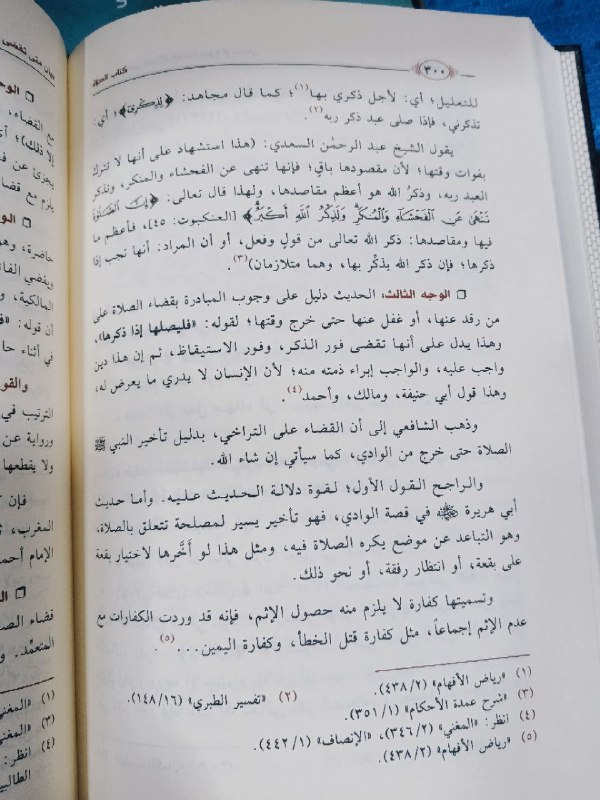 ٣٠٠
كتاب الصلاة
للتعليل؛ أي: لأجل ذكري بها(١)؛ كما قال مجاهد: ﴿لِذِكْرِي﴾؛ أي:
تذكرني، فإذا صلى عبد ذكر ربه(٢).
يقول الشيخ عبد الرحمٰن السعدي: (هذا استشهاد على أنها لا تترك
بفوات وقتها؛ لأن مقصودها باقٍ؛ فإنها تنهى عن الفحشاء والمنكر؛ وتذكر
العبد ربه، وذكرُ الله هو أعظم مقاصدها، ولهذا قال تعالى: ﴿إِنَّ الصَّلَاةَ
تَنْهَىٰ عَنِ الْفَحْشَاءِ وَالْمُنكَرِ وَلَذِكْرُ اللَّهِ أَكْبَرُ﴾ [العنكبوت: ٤٥]، فأعظم ما
فيها ومقاصدها: ذكر الله تعالى من قولٍ وفعل، أو أن المراد: أنها تجب إذا
ذكرها؛ فإن ذكر الله يذكّر بها، وهما متلازمان)(٣).
❒ الوجه الثالث: الحديث دليل على وجوب المبادرة بقضاء الصلاة على
من رقد عنها، أو غفل عنها حتى خرج وقتها؛ لقوله: «فليصلها إذا ذكرها»،
وهذا يدل على أنها تقضى فور الذكر، وفور الاستيقاظ، ثم إن هذا دين
واجب عليه، والواجب إبراء ذمته منه؛ لأن الإنسان لا يدري ما يعرض له،
وهذا قول أبي حنيفة، ومالك، وأحمد(٤).
وذهب الشافعي إلى أن القضاء على التراخي، بدليل تأخير النبي ﷺ
الصلاة حتى خرج من الوادي، كما سيأتي إن شاء الله.
والراجح القول الأول؛ لقوة دلالة الحديث عليه. وأما حديث
أبي هريرة رضي الله عنه في قصة الوادي، فهو تأخير يسير لمصلحة تتعلق بالصلاة،
وهو التباعد عن موضع يكره الصلاة فيه، ومثل هذا لو أَخَّرها لاختيار بقعة
على بقعة، أو انتظار رفقة، أو نحو ذلك.
وتسميتها كفارة لا يلزم منه حصول الإثم، فإنه قد وردت الكفارات مع
عدم الإثم إجماعاً، مثل كفارة قتل الخطأ، وكفارة اليمين...(٥).
(١) «رياض الأفهام» (٤٣٨/٢).
(٢) «تفسير الطبري» (١٤٨/١٦).
(٣) «شرح عمدة الأحكام» (٣٥١/١).
(٤) انظر: «المغني» (٣٤٦/٢)، «الإنصاف» (٤٤٢/١).
(٥) «رياض الأفهام» (٤٣٨/٢).